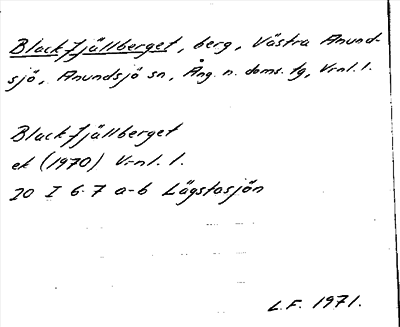 Blackfjällberget, berg, Västra Anund-
sjö, Anundsjö sn, Ång. n. doms. tg, Vrnl. l.
Blackfjällberget
ek (1970) Vrnl. l.
20 I 6-7 a-b Lägstasjön
L.F. 1971.